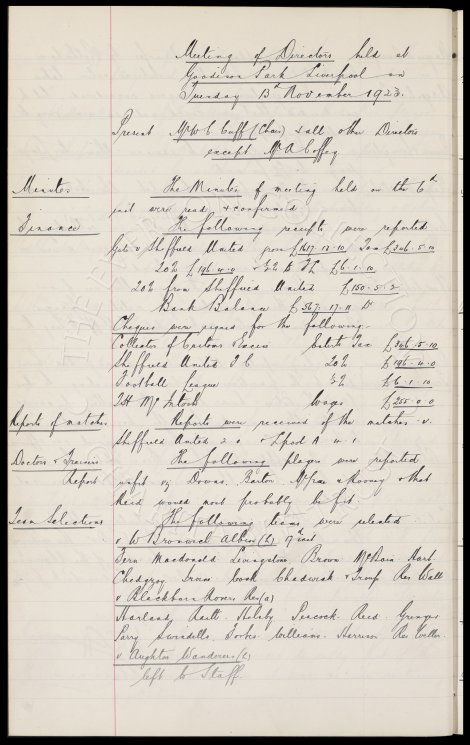 Meeting of Directors held at
Goodison Park Liverpool on
Tuesday 13th November 1923.
Present Mr W C Cuff (Chair) & all other Directors
except Mr A Coffey
Minutes
The Minutes of meeting held on the 6th
inst were read & confirmed
Finance
The following receipts were reported
Gate v Sheffield United gross £1617. 13. 10 Tax £346. 5. 10
20% £196. 4. 0 & ½% to FL £6. 1. 10
20% from Sheffield United £150. 5. 2
Bank Balance £567. 17. 11 Dr
Cheques were signed for the following:-
Collector of Customs & Excise Entets Tax £346. 5. 10
Sheffield United F C 20% £196. 4. 0
Football League ½% £6. 1. 10
T H McIntosh Wages £255. 0. 0
Reports of matches
Reports were received of the matches v.
Sheffield United 2. 0 & Lpool A 4. 1
Doctors & Trainers
Report
The following players were reported
unfit vz Downs, Barton, & Rooney & that
Reid would most probably be fit.
Team Selections
The following teams were selected
v W Bromwich Albion (h) 17th inst
Fern Macdonald Livingstone Brown McBain Hart
Chedgzoy Irvine Cock Chadwick & Troup Res Wall
v Blackburn Rovers Res (a)
Harland, Raitt, Holsby Peacock Reid Grenyer
Parry Swindells, Forbes Williams, Harrison Res Weller
v Aughton Wanderers (h)
left to Staff.